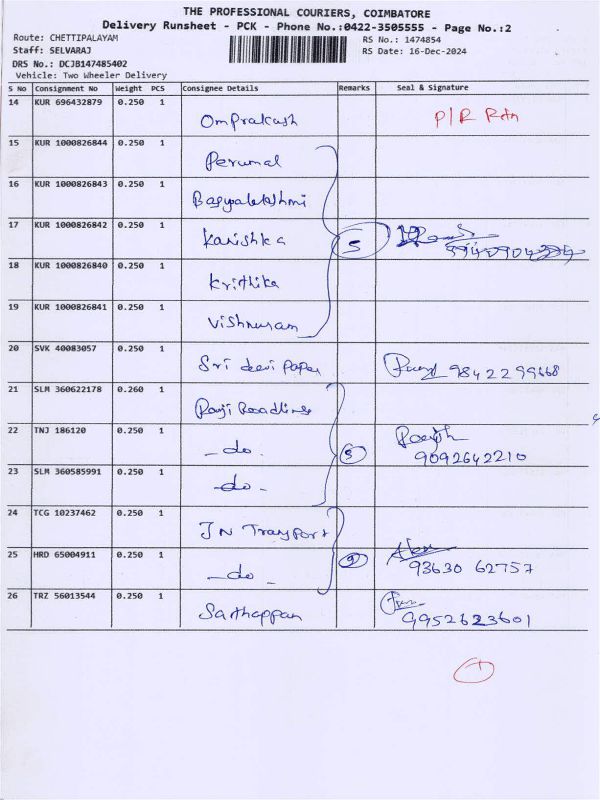 THE PROFESSIONAL COURIERS, COIMBATORE
Delivery Runsheet - PCK - Phone No.:0422-3505555 - Page No.:2
Route: CHETTIPALAYAM RS No.: 1474854
Staff: SELVARAJ RS Date: 16-Dec-2024
DRS No.: DCJB147485402
Vehicle: Two Wheeler Delivery
S No Consignment No Weight PCS Consignee Details Remarks Seal & Signature
14 KUR 696432879 0.250 1 Omprakash P/R Rtn
15 KUR 1000826844 0.250 1 Perumal
16 KUR 1000826843 0.250 1
17 KUR 1000826842 0.250 1 Kanishka 5
18 KUR 1000826840 0.250 1 Krithika
19 KUR 1000826841 0.250 1 Vishnuram
20 SVK 40083057 0.250 1 Sri devi Paper 9842299668
21 SLM 360622178 0.260 1
22 TNJ 186120 0.250 1 -do- 9092642210
23 SLM 360585991 0.250 1 -do-
24 TCG 10237462 0.250 1 JN Transport
25 HRD 65004911 0.250 1 -do- 93630 62757
26 TRZ 56013544 0.250 1 Sathappan 9952623601